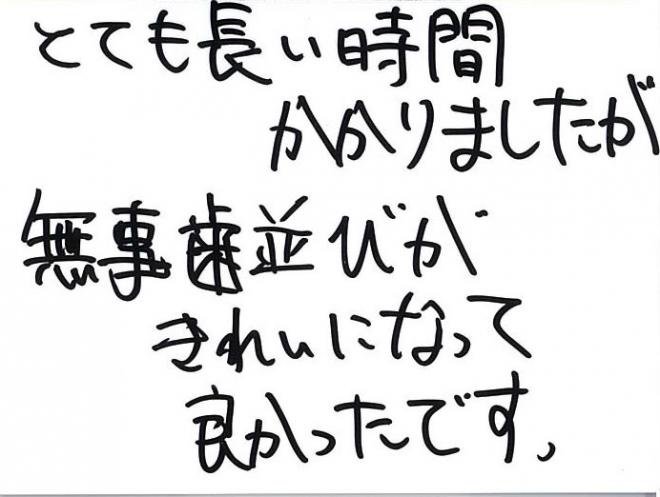 とても長い時間
かかりましたが
無事歯並びが
きれいになって
良かったです、